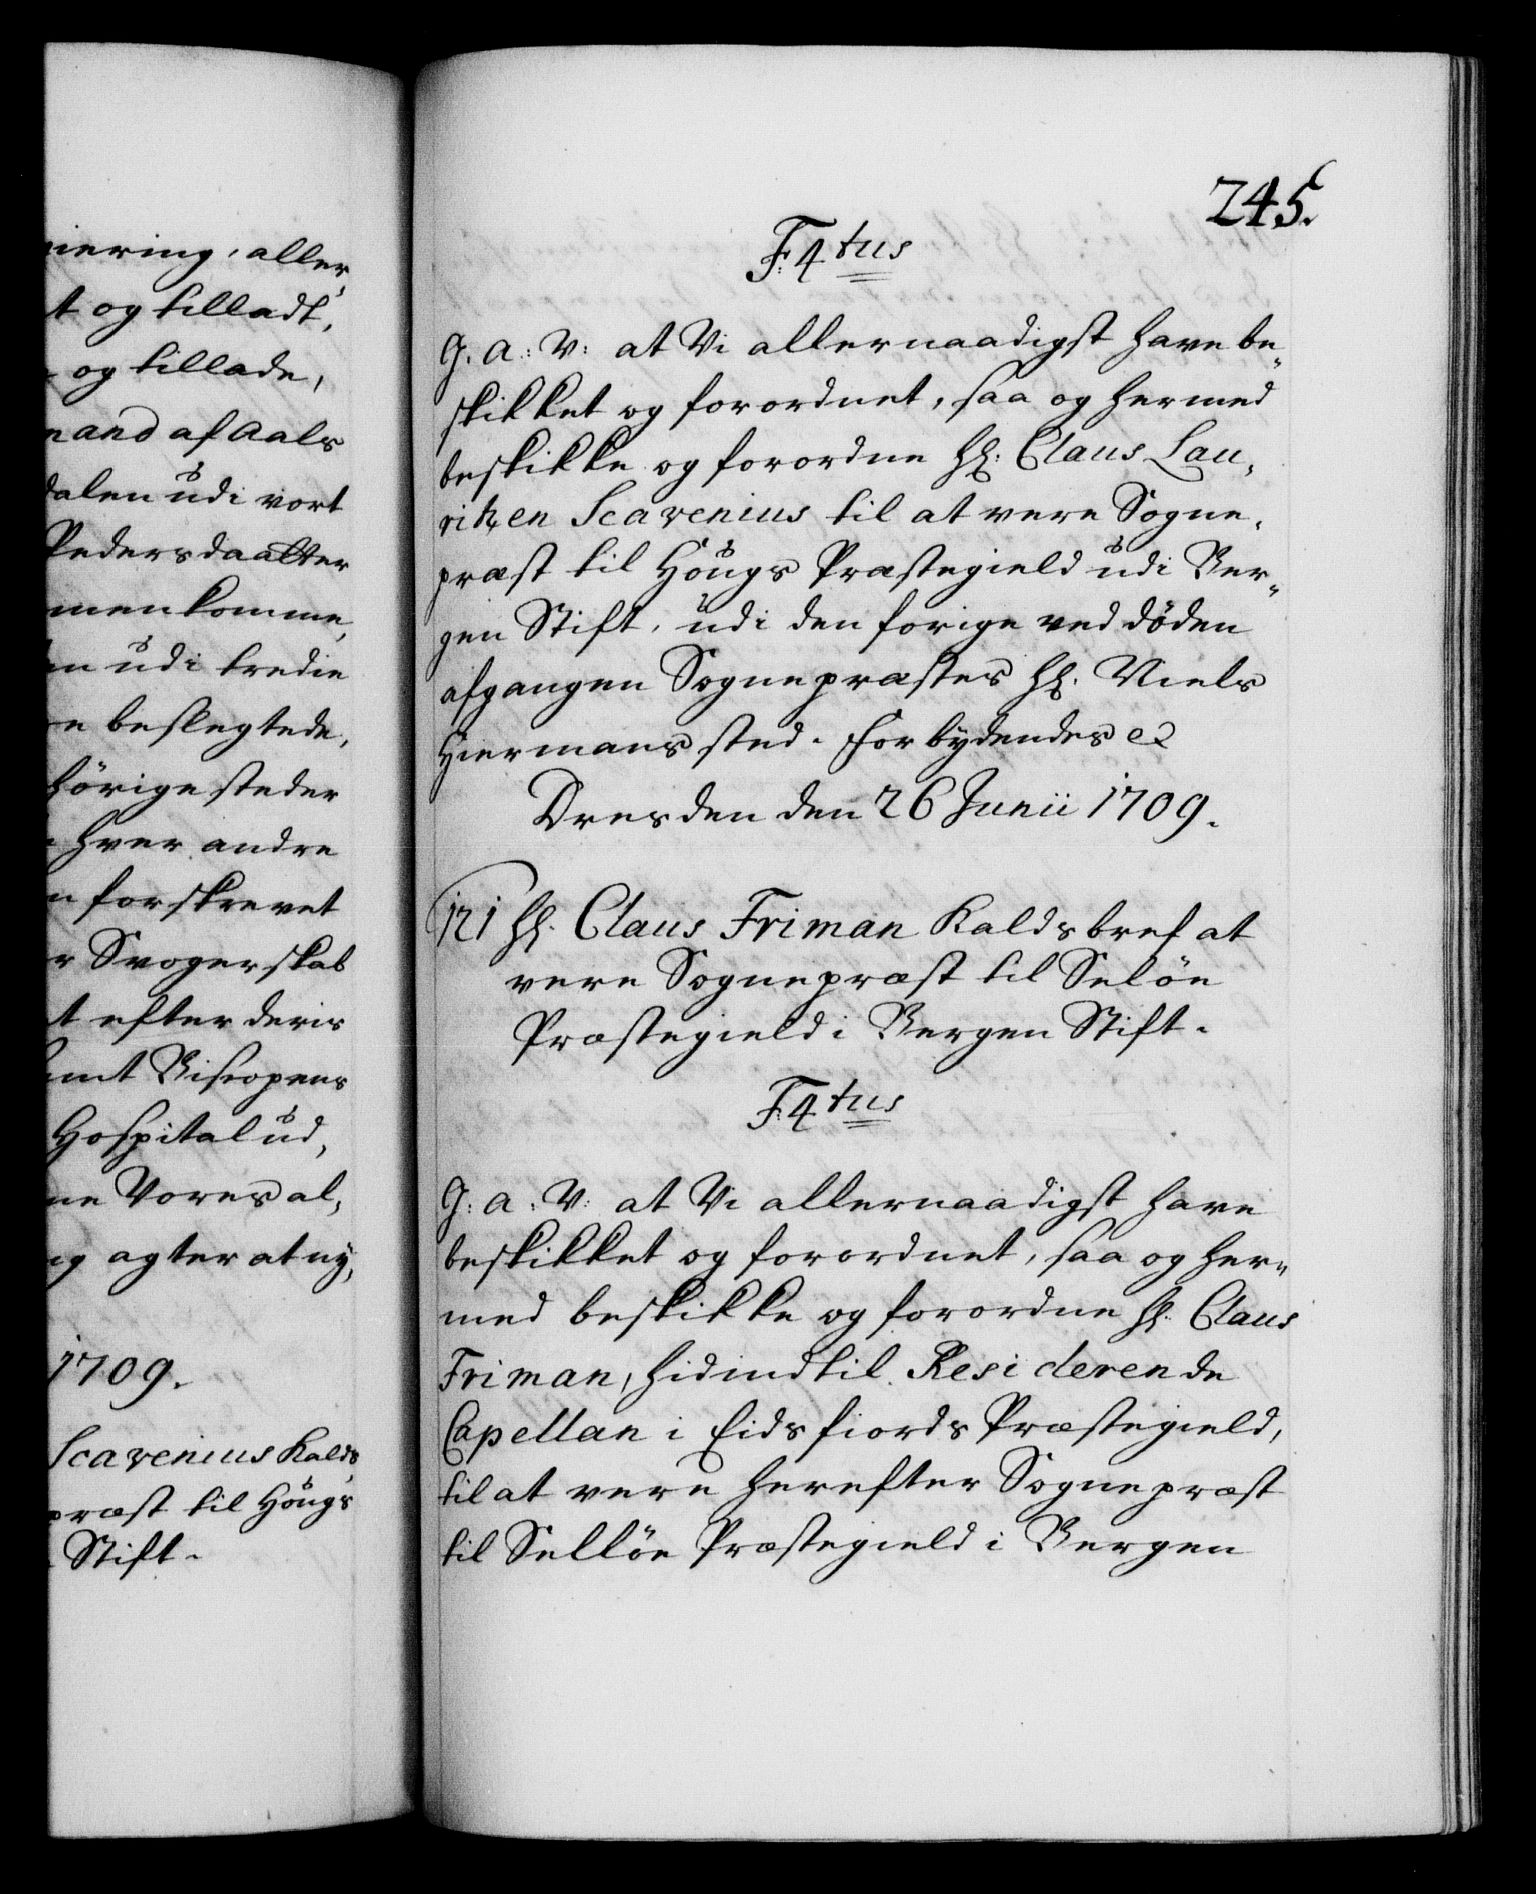 niering, aller,
t og tilladt,
og tillade,
mand af Aals
dalen udi vort
Pedersdaatter
men komme,
en udi tredie
re beslegtede,
hörige steder
hver andre
n forskrevet
r Svogerskab
t efter deris
amt Biscopens
Hospital ud,
ne Vores al,
ig agter at ny,
1709.
Scavenius Kalds
præst til Höugs
Stift.
245.
F: 4tus
G. A: V: at Vi allernaadigst have be„
skikket og forordnet, saa og hermed
beskikke og forordne Hr: Claus Lau,
ritzen Scavenius til at vere Sogne,
præst til Höugs Præstegield udi Ber„
gen Stift, udi den forige ved döden
afgangen Sognepræstes Hr: Niels
Hiermans sted. Forbydendes etc
Dresden den 26 Junii 1709.
121 Hr. Claus Friman Kaldsbref at
vere Sognepræst til Selöe
Præstegield i Bergen Stift.
F: 4tus
G: A: V: at Vi allernaadigst have
beskikket og forordnet, saa og her„
med beskikke og forordne Hr. Claus
Friman, hidindtil Residerende
Capellan i Eidsfiords Præstegield,
til at vere herefter Sognepræst
til Sellöe Præstegield i Bergen